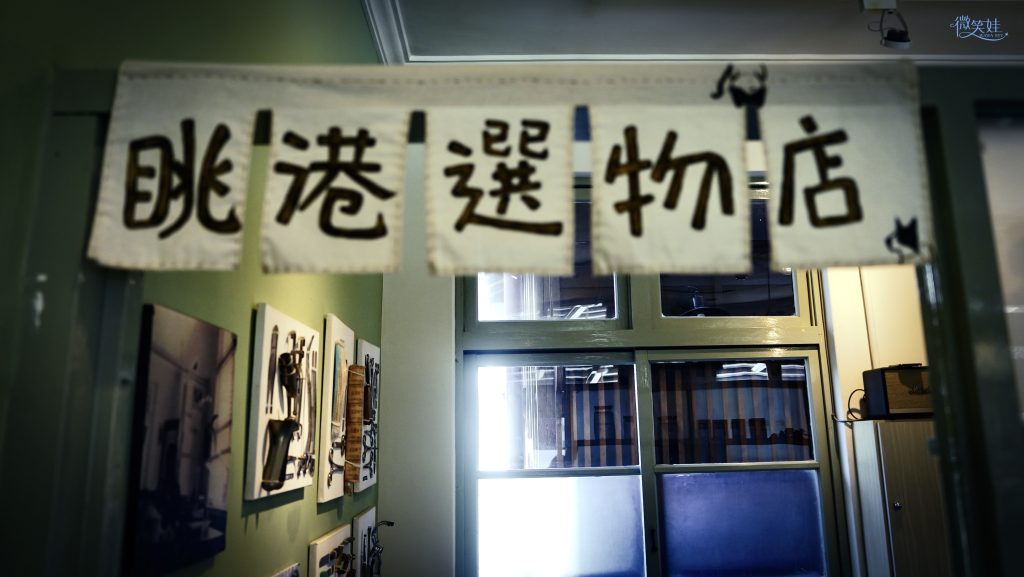 眺港選物店
微笑娃